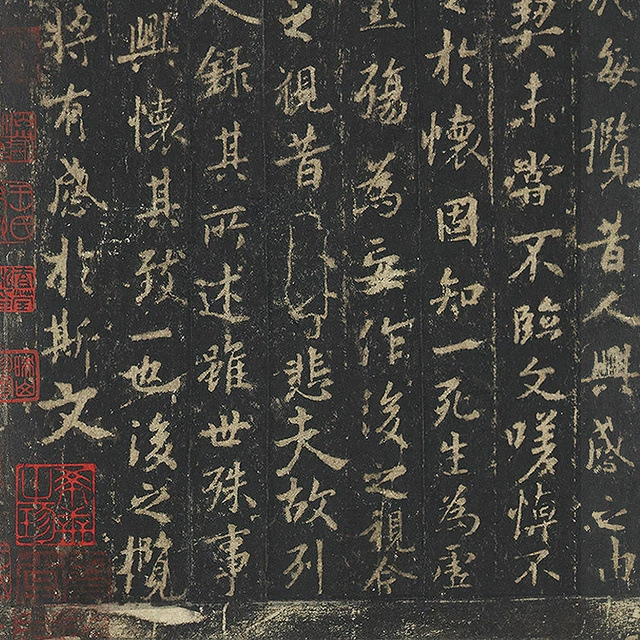 每攬昔人興感之由
契未嘗不臨文嗟悼不
於懷固知一死生為虛
殤為妄作後之視今
之視昔悲夫故列
人錄其所述雖世殊事
興懷其致一也後之攬
將有感於斯文